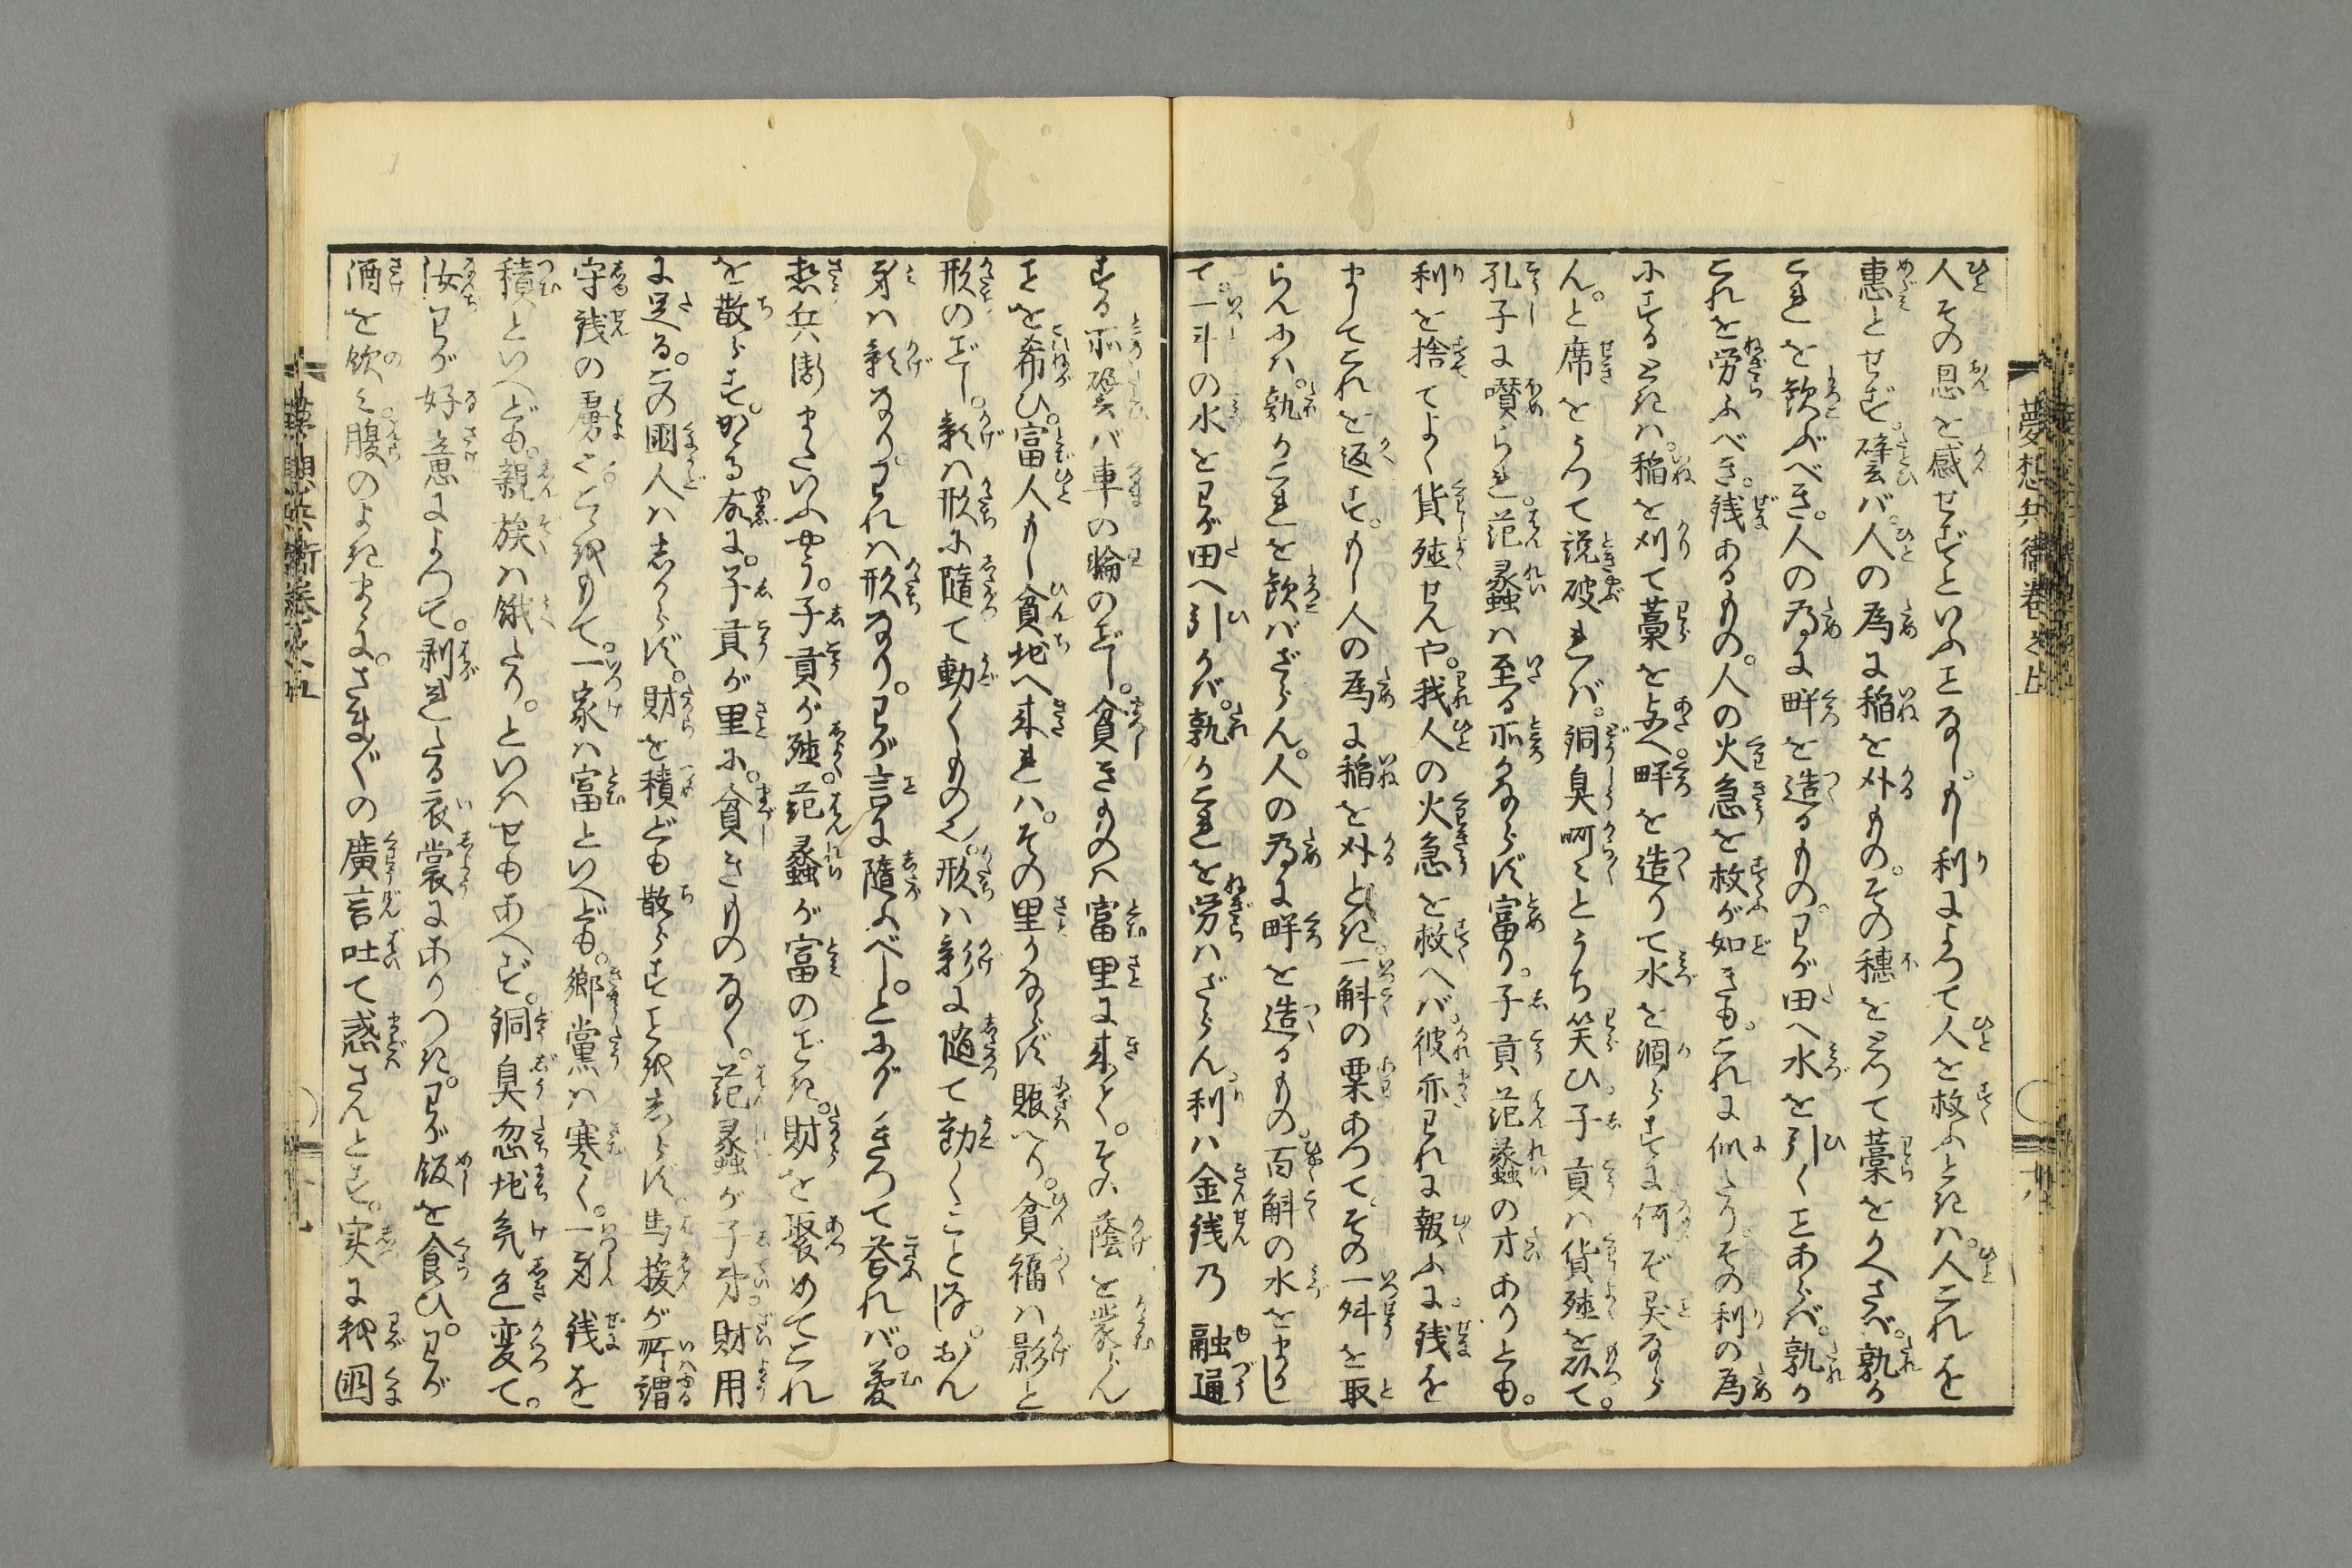 人その恩を感せずといふことなし。もし利によつて人を救ふときハ。人これを
惠とせず。譬バ。人の為に稲を刈るもの。その穗をとつて藁をくへさバ。孰か
これを歓ぶべき。人の為に畔を造るもの。わが田へ水を引くことあらバ。孰か
これを労ふべき。銭あるもの。人の火急を救ふが如きも。これに似たり。その利の為
にするときハ。稲を刈て藁を与へ。畔を造りて水を涸らすに何ぞ異なら
ん。と席をうつて説破すれバ。銅臭呵々とうち笑ひ。子貢ハ貨殖を以て。
孔子に讃られ。范蠡ハ至る所かならず富り。子貢范蠡の才ありとも。
利を捨てよく貨殖せんや。我人の火急を救へバ。彼亦われに報ふに。銭を
ましてこれを返す。もし人の為に稲を刈とき。一斛の粟あつて。その一舛を取
らんにハ。孰かこれを歓バざらん。人の為に畔を造るもの。百斛の水をまし
て。一斗の水をわが田へ引かバ。孰かこれを労ハざらん。利ハ金銭乃融通
する所。譬バ車の輪のごとし。貧きものハ富里に来て。その蔭を蒙らん
ことを希ひ。富人もし貧地へ来れハ。その里かならず賑へり。貧福ハ影と
形のごとし。影ハ形に随て動くもの也。形ハ影に随て動くことなし。おん
身ハ影なり。われハ形なり。わが言に随ふべし。とほゝゑつて答れバ。夢
想兵衛またいふやう。子貢が殖。范蠡が富のごとき。財を聚めてこれ
を散らす。かゝる故に。子貢が里に。貧きものなく。范蠡が子弟財用
に足る。この国人ハしからず。財を積ども散らすことをしらず。馬援が所謂
守銭の虜と。こゝをもて。一家ハ富といへども。郷黨ハ寒く。一身銭を
積といへども。親族ハ餓たり。といはせもあへず。銅臭忽地気色変て。
汝わが好意によつて。剥れたる衣裳にありつき。わが飯を食ひ。わが
酒を飲み腹のよきまゝに。さまざまの廣言吐て惑さんとす。実に我国
夢想兵衛巻之上
夢想兵衛巻之五